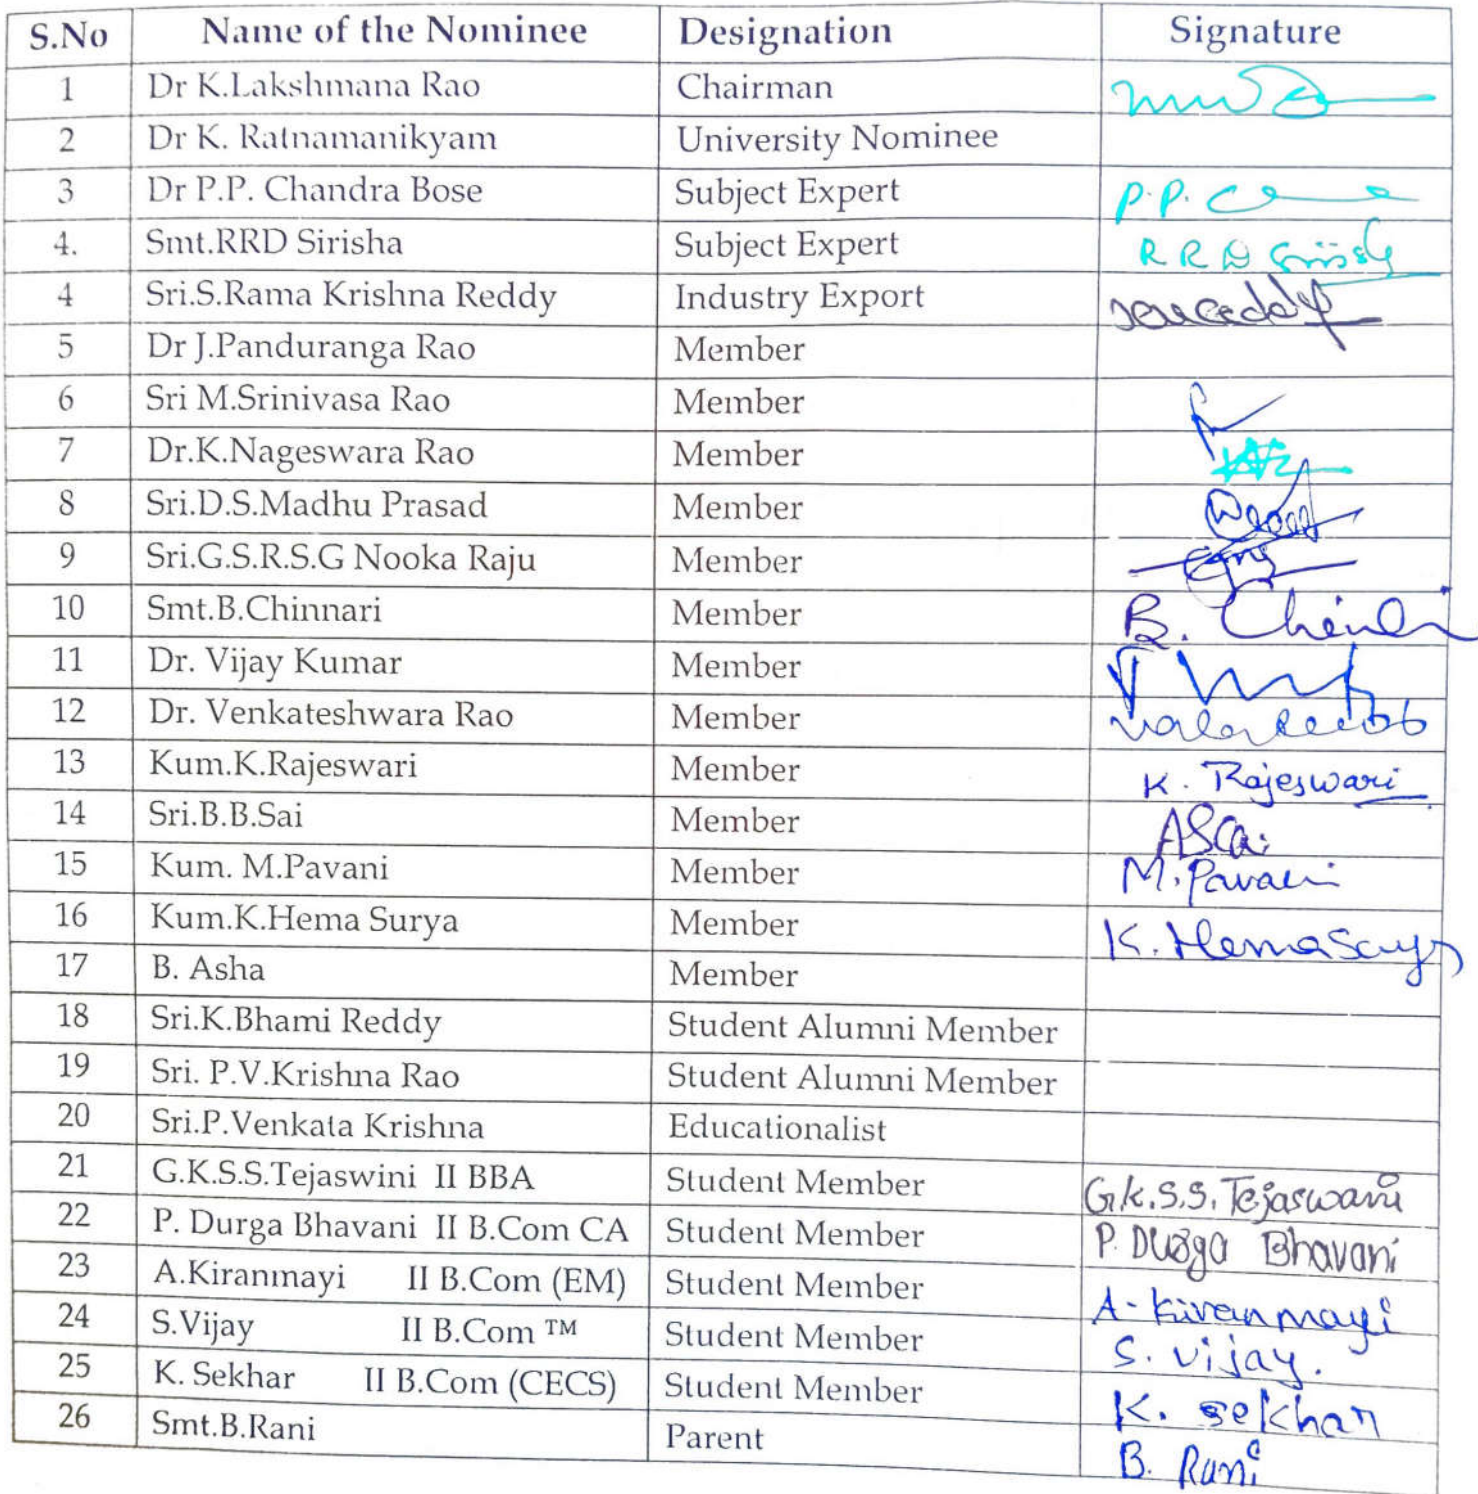 S.No Name of the Nominee Designation Signature
1 Dr K.Lakshmana Rao Chairman
2 Dr K. Ratnamanikyam University Nominee
3 Dr P.P. Chandra Bose Subject Expert P.P.
4. Smt.RRD Sirisha Subject Expert RRD
4 Sri.S.Rama Krishna Reddy Industry Export
5 Dr J.Panduranga Rao Member
6 Sri M.Srinivasa Rao Member
7 Dr.K.Nageswara Rao Member
8 Sri.D.S.Madhu Prasad Member
9 Sri.G.S.R.S.G Nooka Raju Member
10 Smt.B.Chinnari Member B.
11 Dr. Vijay Kumar Member
12 Dr. Venkateshwara Rao Member
13 Kum.K.Rajeswari Member K. Rajeswari
14 Sri.B.B.Sai Member
15 Kum. M.Pavani Member M.Pavani
16 Kum.K.Hema Surya Member K. Hema
17 B. Asha Member
18 Sri.K.Bhami Reddy Student Alumni Member
19 Sri. P.V.Krishna Rao Student Alumni Member
20 Sri.P.Venkata Krishna Educationalist
21 G.K.S.S.Tejaswini II BBA Student Member G.K.S.S. Tejaswani
22 P. Durga Bhavani II B.Com CA Student Member P. Durga Bhavani
23 A.Kiranmayi II B.Com (EM) Student Member A- Kiranmayi
24 S.Vijay II B.Com ™ Student Member S. vijay.
25 K. Sekhar II B.Com (CECS) Student Member K. sekhar
26 Smt.B.Rani Parent B. Rani